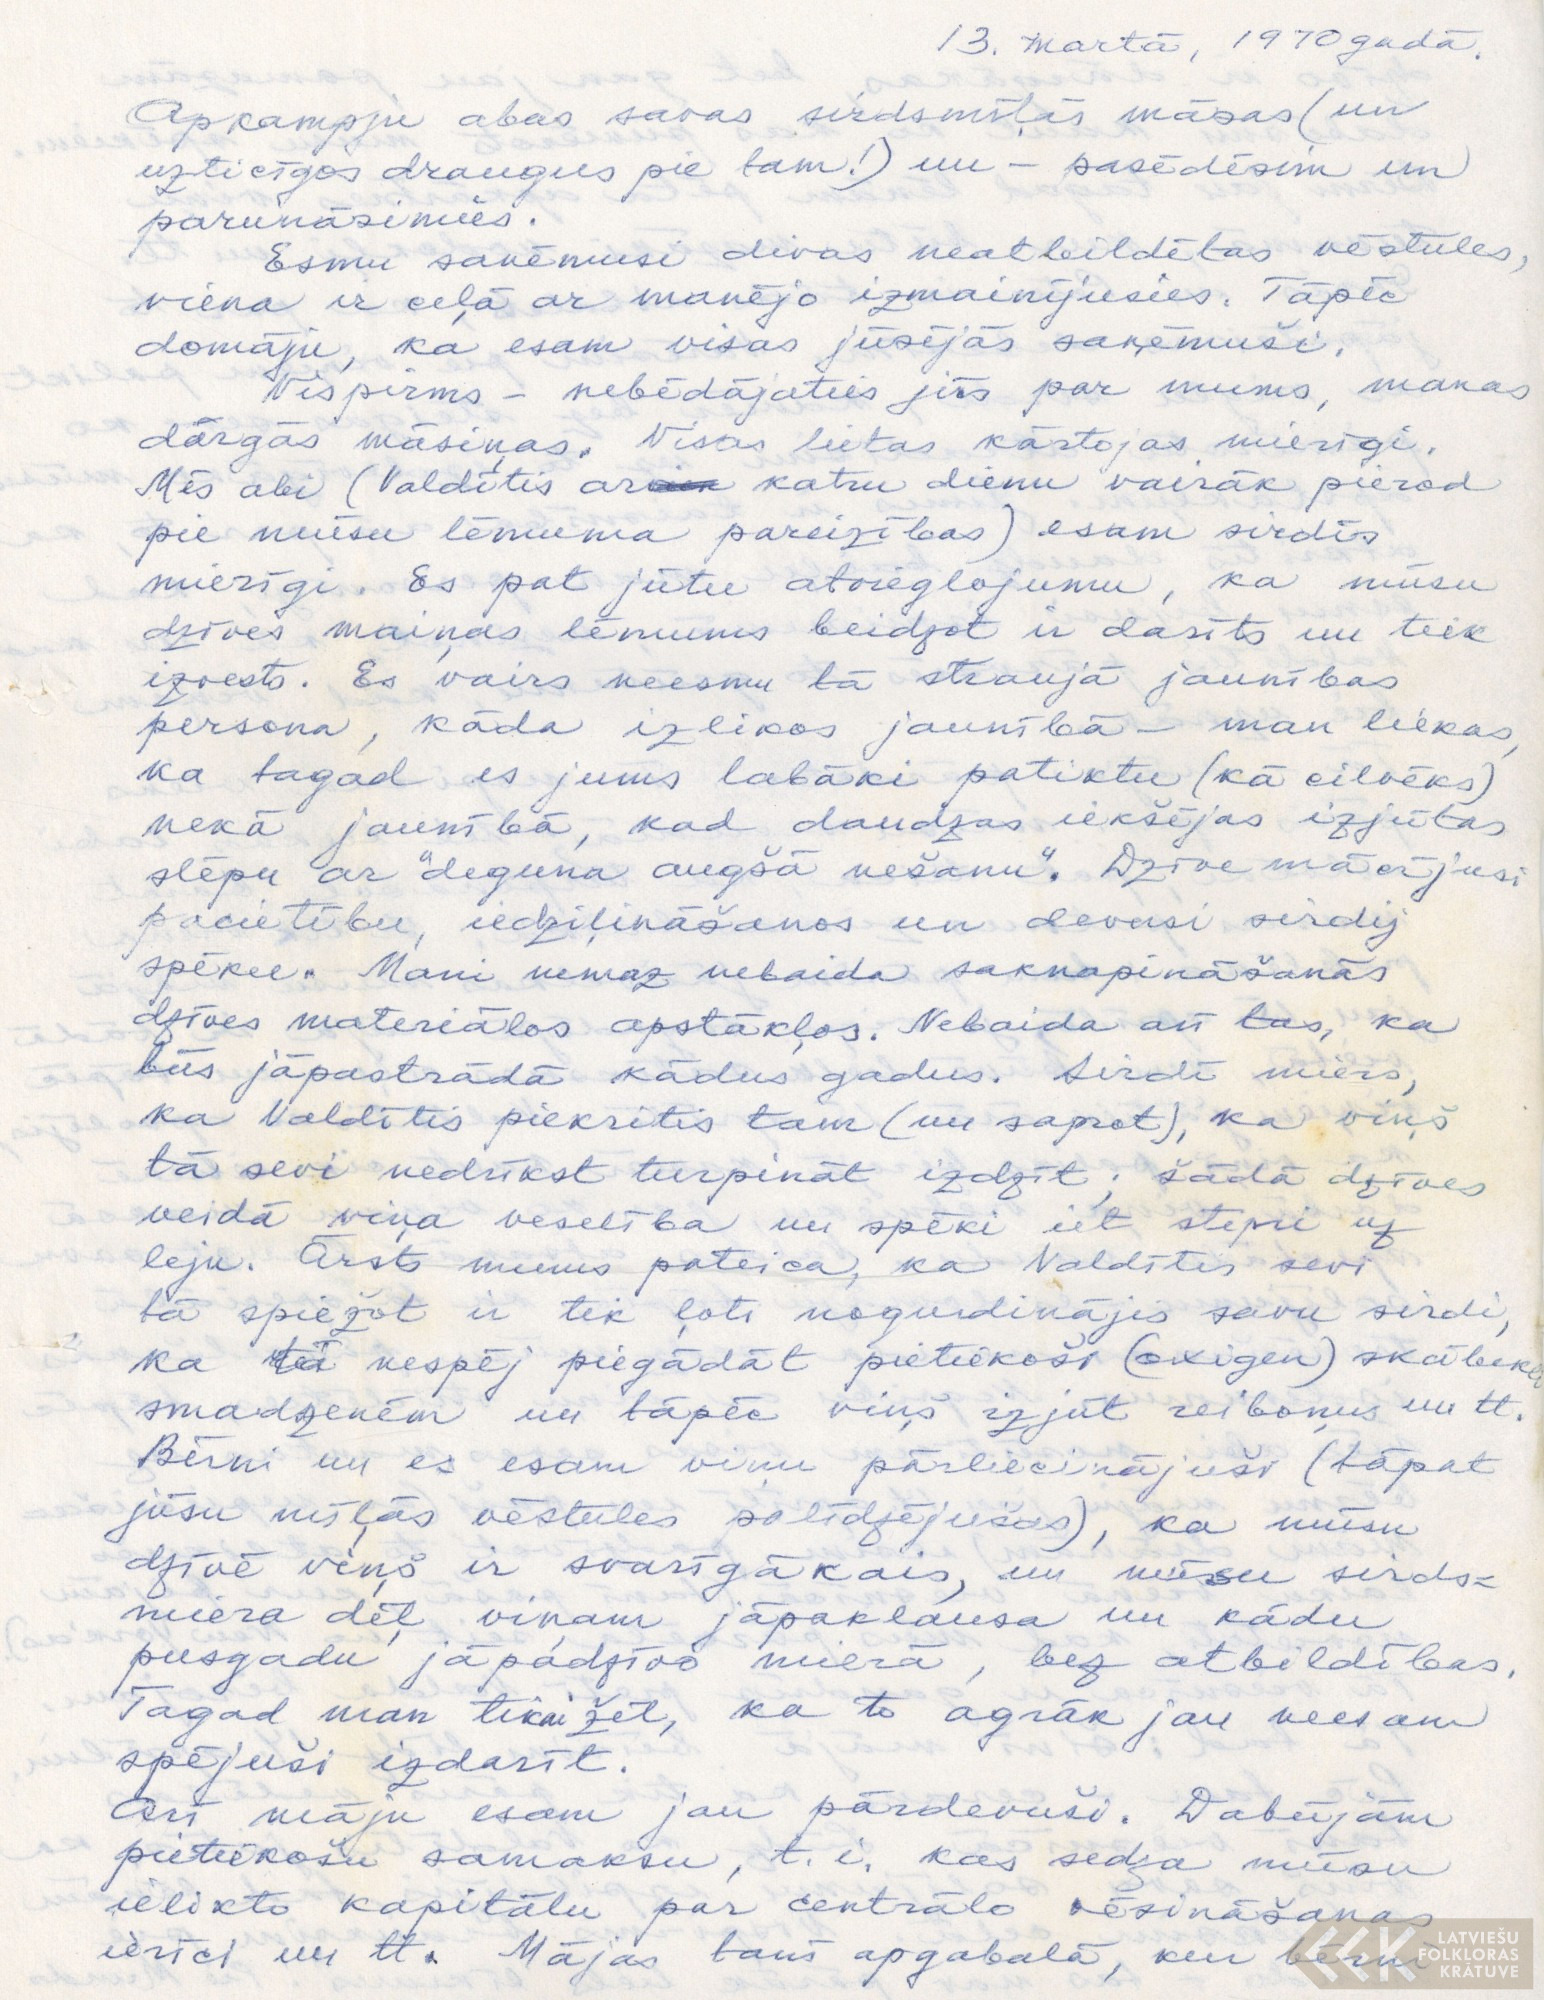 13. martā, 1970 gadā.
Apkampju abas savas sirdsmīļās māsas (un
uzticīgos draugus pie tam!) un – pasēdēsim un
parunāsimies.
Esmu saņēmusi divas neatbildētas vēstules,
viena ir ceļā ar manējo izmainījusies. Tāpēc
domāju, ka esam visas jūsējās saņēmuši.
Vispirms – nebēdājaties jūs par mums, manas
dārgās māsiņas. Visas lietas kārtojas mierīgi.
Mēs abi (Valdītis ar katru dienu vairāk pierod
pie mūsu lēmuma pareizības) esam sirdīs
mierīgi. Es pat jūtu atvieglojumu, ka mūsu
dzīves maiņas lēmums beidzot ir darīts un tiek
izvests. Es vairs neesmu tā straujā jaunības
persona, kāda izlikos jaunībā – man liekas,
ka tagad es jums labāki patiktu (kā cilvēks)
nekā jaunībā, kad daudzas iekšējas izjūtas
slēpu ar "deguna augšā nešanu". Dzīve mācījusi
pacietību, iedziļināšanos un devusi sirdij
spēku. Mani nemaz nebaida saknapināšanās
dzīves materiālos apstākļos. Nebaida arī tas, ka
būs jāpastrādā kādus gadus. Sirdī miers,
ka Valdītis piekritis tam (un saprot), ka viņš
tā sevi nedrīkst turpināt izdzīt; šādā dzīves
veidā viņa veselība un spēki iet stepri uz
leju. Ārsts mums pateica, ka Valdītis sevi
tā spiežot ir tik ļoti nogurdinājis savu sirdi,
ka tā nespēj piegādāt pietiekoši (oxigen) skābekli
smadzenēm un tāpēc viņš izjūt reiboņus un tt.
Bērni un es esam viņu pārliecinājuši (tāpat
jūsu mīļās vēstules palīdzējušas), ka mūsu
dzīvē viņš ir svarīgākais, un mūsu sirds=
miera dēļ viņam jāpaklausa un kādu
pusgadu jāpadzīvo mierā, bez atbildības.
Tagad man tikai žēl, ka to agrāk jau neesam
spējuši izdarīt.
Arī māju esam jau pārdevuši. Dabūjām
pietiekošu samaksu, t.i. kas sedza mūsu
ielikto kapitālu par centrālo vēsināšanas
ierīci un tt. Mājas tanī apgabalā, kur bērni
LATVIEŠU
FOLKLORAS
KRĀTUVE